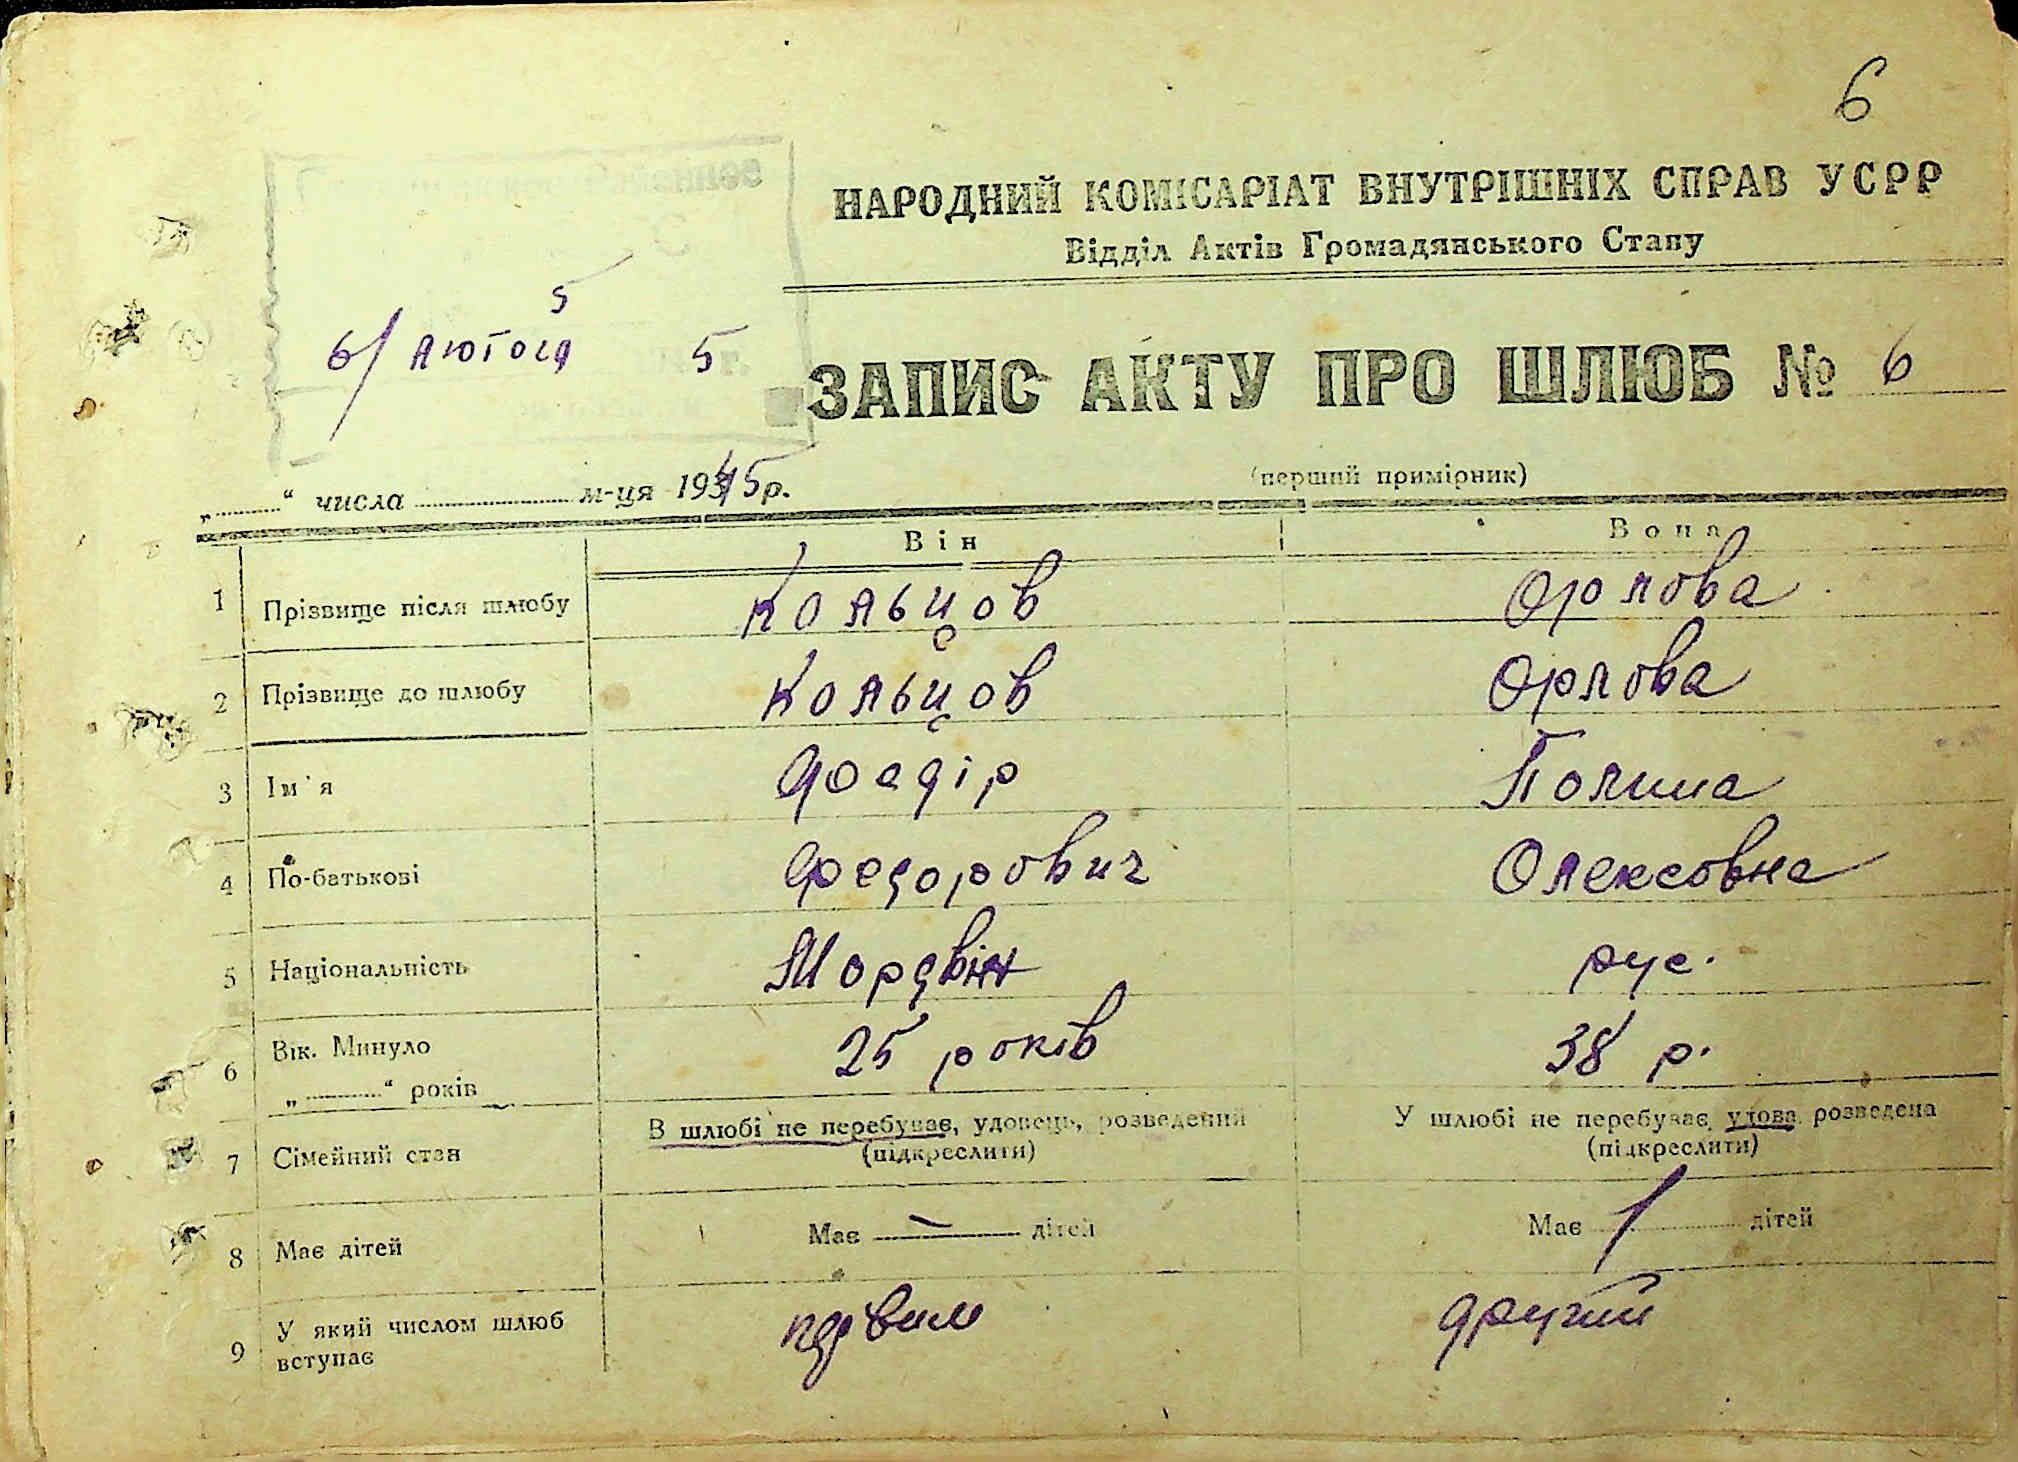 6
НАРОДНИЙ КОМІСАРІАТ ВНУТРІШНІХ СПРАВ УСРР
Відділ Актів Громадянського Стану
5
6/ лютого 5
ЗАПИС АКТУ ПРО ШЛЮБ № 6
(перший примірник)
„ “ числа м-ця 1945 р.
Він Вона
1 Прізвище після шлюбу Кольцов Орлова
2 Прізвище до шлюбу Кольцов Орлова
3 Ім'я Фоедір Поліна
4 По-батькові Федорович Олексовна
5 Національність Мордвін рус.
6 Вік. Минуло 25 років 38 р.
„ “ років
7 Сімейний стан В шлюбі не перебуває, удовець, розведений У шлюбі не перебуває, удова розведена
(підкреслити) (підкреслити)
8 Має дітей Має — дітей Має 1 дітей
9 У який числом шлюб вступає первим другий